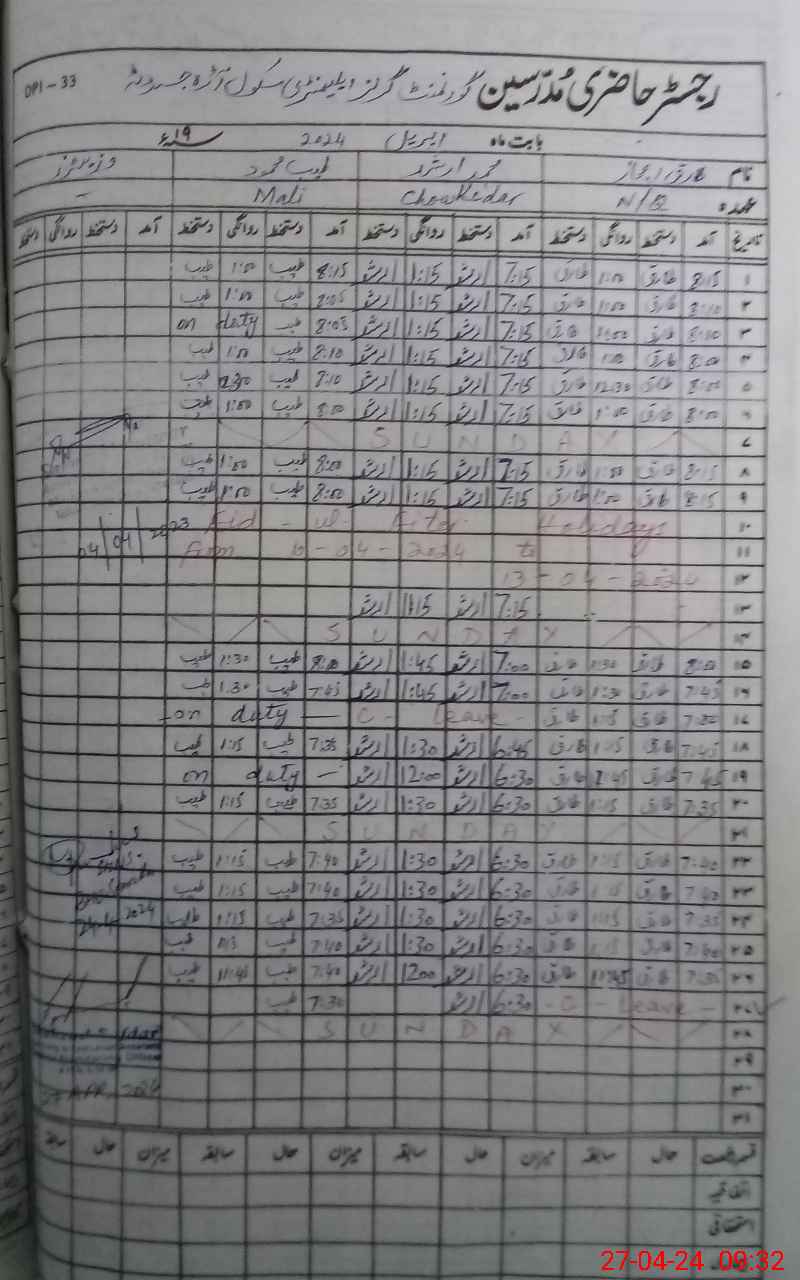 رجسٹر حاضری مُدرّسین گورنمنٹ گرلز ایلیمنٹری سکول DPI-33
بابت ماہ اپریل 2024 سنہ ۱۹ء
نام طارق اعجاز محمد ارشد طیب محمود وزیٹرز
عہدہ N/Q Chowkedar Mali -
تاریخ آمد دستخط روانگی دستخط آمد دستخط روانگی دستخط آمد دستخط روانگی دستخط آمد دستخط روانگی دستخط
۱ 8:15 طارق 1:00 طارق 7:15 ارشد 1:15 ارشد 8:15 طیب 1:00 طیب
۲ 8:10 طارق 1:00 طارق 7:15 ارشد 1:15 ارشد 8:05 طیب 1:00 طیب
۳ 8:10 طارق 1:00 طارق 7:15 ارشد 1:15 ارشد 8:05 طیب on duty
۴ 8:00 طارق 1:00 طارق 7:15 ارشد 1:15 ارشد 8:10 طیب 1:00 طیب
۵ 8:00 طارق 12:30 طارق 7:15 ارشد 1:15 ارشد 8:10 طیب 12:30 طیب
۶ 8:00 طارق 1:00 طارق 7:15 ارشد 1:15 ارشد 8:00 طیب 1:00 طیب
۷ SUNDAY
۸ 8:15 طارق 1:00 طارق 7:15 ارشد 1:15 ارشد 8:00 طیب 1:00 طیب
۹ 8:15 طارق 1:00 طارق 7:15 ارشد 1:15 ارشد 8:00 طیب 1:00 طیب
۱۰ Eid - ul - Fiter Holidays
04/04/2023
۱۱ from 10-04-2024 to
۱۲ 13-04-2024
۱۳ 7:15 ارشد 1:15 ارشد
۱۴ SUNDAY
۱۵ 8:00 طارق 1:30 طارق 7:00 ارشد 1:45 ارشد 8:00 طیب 1:30 طیب
۱۶ 7:45 طارق 1:30 طارق 7:00 ارشد 1:45 ارشد 7:45 طیب 1:30 طیب
۱۷ 7:30 طارق 1:15 طارق C - Leave - on duty -
۱۸ 7:45 طارق 1:15 طارق 6:45 ارشد 1:30 ارشد 7:35 طیب 1:15 طیب
۱۹ 7:45 طارق 1:45 طارق 6:30 ارشد 12:00 ارشد on duty -
۲۰ 7:35 طارق 1:15 طارق 6:30 ارشد 1:30 ارشد 7:35 طیب 1:15 طیب
۲۱ SUNDAY
۲۲ 7:40 طارق 1:15 طارق 6:30 ارشد 1:30 ارشد 7:40 طیب 1:15 طیب
۲۳ 7:40 طارق 1:15 طارق 6:30 ارشد 1:30 ارشد 7:40 طیب 1:15 طیب
۲۴ 7:35 طارق 1:15 طارق 6:30 ارشد 1:30 ارشد 7:35 طیب 1:15 طیب
24-4-2024
۲۵ 7:40 طارق 1:15 طارق 6:30 ارشد 1:30 ارشد 7:40 طیب 1:15 طیب
۲۶ 7:35 طارق 11:45 طارق 6:30 ارشد 1200 ارشد 7:40 طیب 11:45 طیب
۲۷ - C - Leave - 6:30 ارشد 7:30 طیب
۲۸ SUNDAY
۲۹
۳۰
APR 2024
۳۱
قسم رخصت حال سابقہ میزان حال سابقہ میزان حال سابقہ میزان حال سابقہ
اتفاقیہ
استحقاقی
27-04-24 09:32